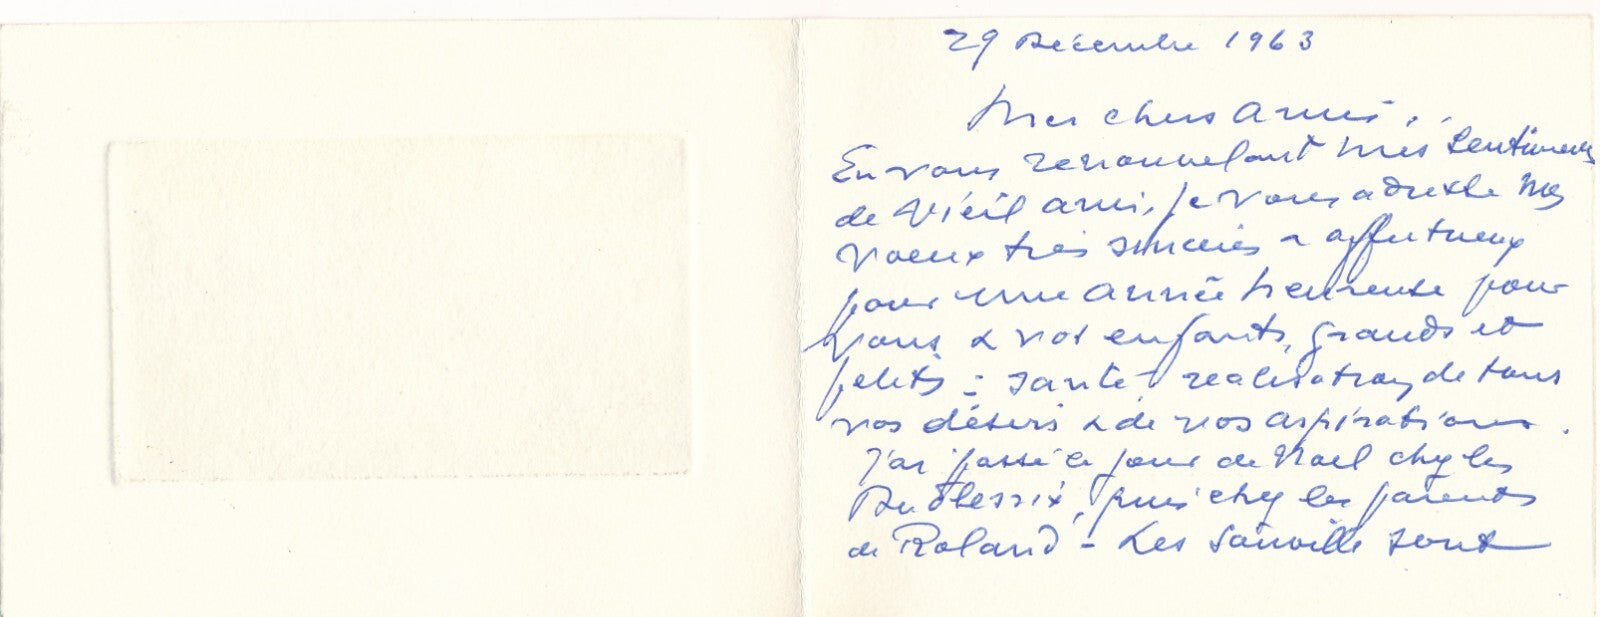 29 Décembre 1963
Mes chers amis,
En vous renouvelant mes sentiments
de vieil ami, je vous adresse mes
voeux très sincères & affectueux
pour une année heureuse pour
vous & vos enfants, grands et
petits : santé, réalisation de tous
vos désirs & de vos aspirations.
J'ai passé le jour de Noël chez les
puis chez les parents
de Roland - Les sont